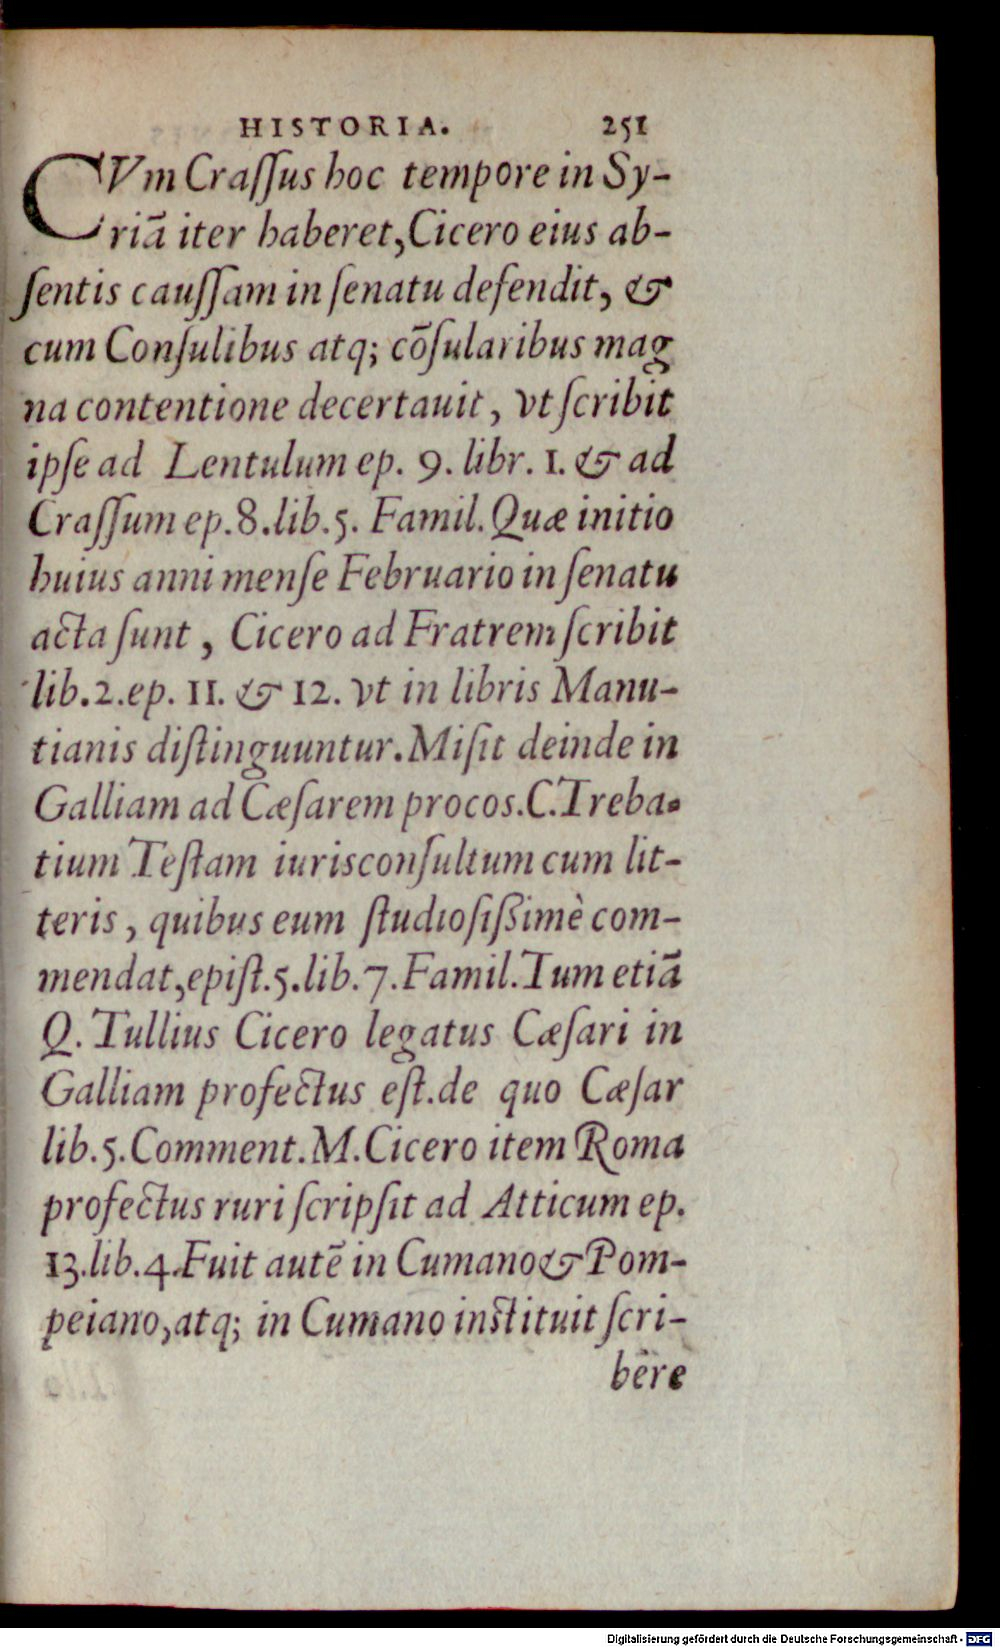 HISTORIA. 251
CVm Craſſus hoc tempore in Sy-
riā iter haberet, Cicero eius ab-
ſentis cauſſam in ſenatu defendit, &
cum Conſulibus atq; cōſularibus mag
na contentione decertauit, vt ſcribit
ipſe ad Lentulum ep. 9. libr. 1. & ad
Craſſum ep. 8. lib. 5. Famil. Quæ initio
huius anni menſe Februario in ſenatu
acta ſunt, Cicero ad Fratrem ſcribit
lib. 2. ep. 11. & 12. vt in libris Manu-
tianis diſtinguuntur. Miſit deinde in
Galliam ad Cæſarem procos. C. Treba-
tium Teſtam iurisconſultum cum lit-
teris, quibus eum ſtudioſißimè com-
mendat, epiſt. 5. lib. 7. Famil. Tum etiā
Q. Tullius Cicero legatus Cæſari in
Galliam profectus eſt. de quo Cæſar
lib. 5. Comment. M. Cicero item Roma
profectus ruri ſcripſit ad Atticum ep.
13. lib. 4. Fuit autē in Cumano & Pom-
peiano, atq; in Cumano inſtituit ſcri-
bere
Digitalisierung gefördert durch die Deutsche Forschungsgemeinschaft - DFG